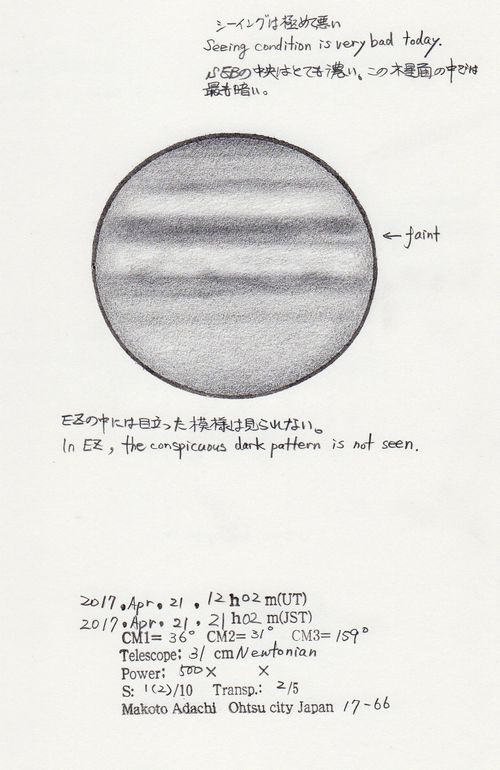 シーイングは極めて悪い
Seeing condition is very bad today.
SEBの中央はとても濃い。この木星面の中では
最も暗い。
← faint
EZの中には目立った模様は見られない。
In EZ, the conspicuous dark pattern is not seen.
2017. Apr. 21 . 12 h 02 m(UT)
2017. Apr. 21 . 21 h 02 m(JST)
CM1= 36° CM2= 31° CM3= 159°
Telescope: 31 cm Newtonian
Power: 500 × ×
S: 1(2)/10 Transp.: 2/5
Makoto Adachi Ohtsu city Japan 17-66